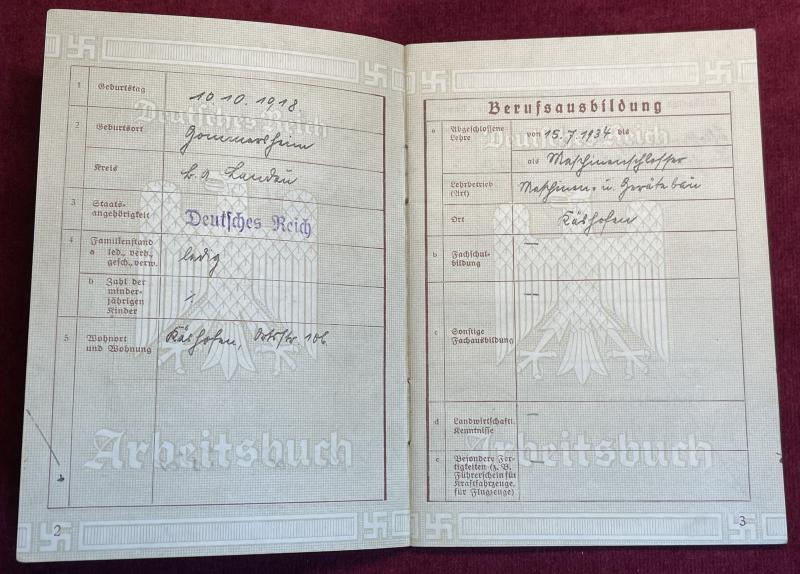 1 Geburtstag 10 10. 1918
Deutsches Reich
2 Geburtsort Gommersheim
Kreis b. a. Landau
3 Staats-
angehörigkeit Deutsches Reich
4 Familienstand
a led., verh., ledig
gesch., verw.
b Zahl der
minder-
jährigen
Kinder
5 Wohnort Käshofen, Ortsstr. 106
und Wohnung
Arbeitsbuch
2
Berufsausbildung
a Abgeschlossene von 15. 7. 1934 bis
Lehre
Deutsches Reich
als Maschinenschlosser
Lehrbetrieb Maschinen- u. Gerätebau
(Art)
Ort Käshofen
b Fachschul- —
bildung
—
c Sonstige
Fachausbildung
d Landwirtschaftl. —
Kenntnisse
Arbeitsbuch
e Besondere Fer- —
tigkeiten (z. B.
Führerschein für
Kraftfahrzeuge,
für Flugzeuge)
3